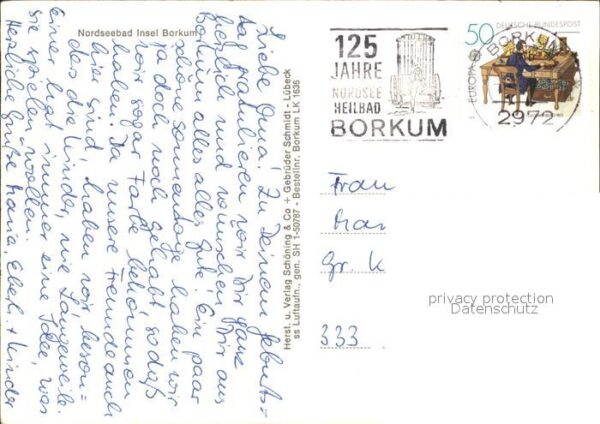 Nordseebad Insel Borkum
Liebe Oma! Zu Deinem Geburts=
tag gratulieren wir Dir ganz
herzlich und wünschen Dir aus
Borkum alles, alles Gute! Ein paar
schöne Sonnentage haben wir
ja doch noch gehabt, so daß
wir sogar Farbe bekommen
haben. Da unsere Freunde auch
hier sind, haben wir, beson=
ders die Kinder, nie Langeweile.
Einer hat immer eine Idee, was
sie spielen wollen.
Herzliche Grüße Maria, Eberh. + Kinder
Herst. u. Verlag Schöning & Co + Gebrüder Schmidt - Lübeck
ss Luftaufn., gen. SH 1-50787 - Bestellnr. Borkum LK 1636
125
JAHRE
NORDSEE
HEILBAD
BORKUM
50
DEUTSCHE BUNDESPOST
EUROPA
BORKUM
2972
Frau
Mar
Gr. K
333
privacy protection
Datenschutz